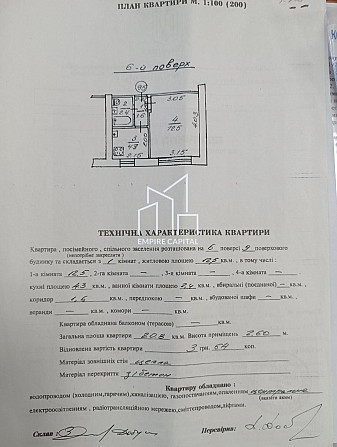 ПЛАН КВАРТИРИ М. 1:100 (200)
6-й поверх
3.05
2
2.4
1
1.6
4
12.5
4.03
3
4.3
2.05
2.15
3.15
EMPIRE CAPITAL
ТЕХНІЧНА ХАРАКТЕРИСТИКА КВАРТИРИ
Квартира, посімейного, спільного заселення розташована на 6 поверсі 9 поверхового
(непотрібне закреслити)
будинку та складається з 1 кімнат, житловою площею 12,5 кв.м., в тому числі:
1-а кімната 12,5, 2-га кімната — кв.м., 3-я кімната — кв.м., 4-а кімната —
кухні площею 4,3 кв.м., ванної кімнати площею 2,4 кв.м., вбиральні (поєднаної) — кв.м.,
коридор 1,6 кв.м., передпокою — кв.м., вбудовані шафи — кв.м.,
веранди — кв.м., комори — кв.м.
Квартира обладнана балконом (терасою) — кв.м.
Загальна площа квартири 20.8 кв.м. Висота приміщень 2.60 м.
Відновлена вартість квартири 3 грн. 64 коп.
Матеріал зовнішніх стін цегла
Матеріал перекриття з/бетон
Квартиру обладнано:
водопроводом (холодним, гарячим), каналізацією, газопостачанням, опаленням центральне
(вказати яким)
електроосвітленням, радіотрансляційною мережею, сміттєпроводом, ліфтами.
Склав
Перевірив: